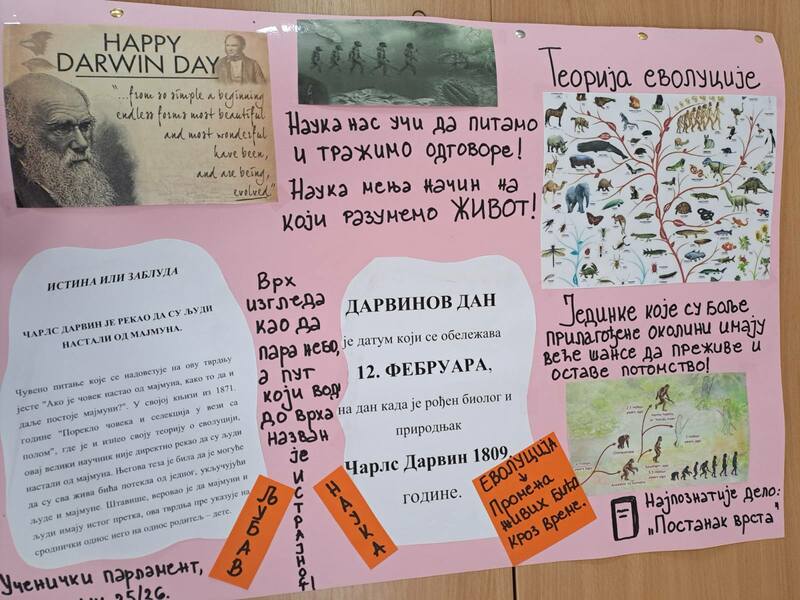 HAPPY
DARWIN DAY
"...from so simple a beginning
endless forms most beautiful
and most wonderful
have been,
and are being,
evolved."
Наука нас учи да питамо
и тражимо одговоре!
Наука мења начин на
који разумемо ЖИВОТ!
Теорија еволуције
ИСТИНА ИЛИ ЗАБЛУДА
ЧАРЛС ДАРВИН ЈЕ РЕКАО ДА СУ ЉУДИ
НАСТАЛИ ОД МАЈМУНА.
Чувено питање које се надовезује на ову тврдњу
јесте "Ако је човек настао од мајмуна, како то да и
даље постоје мајмуни?". У својој књизи из 1871.
године "Порекло човека и селекција у вези са
полом", где је и изнео своју теорију о еволуцији,
овај велики научник није директно рекао да су људи
настали од мајмуна. Његова теза је била да је могуће
да су сва жива бића потекла од једног, укључујући
људе и мајмуне. Штавише, веровао је да мајмуни и
људи имају истог претка, ова тврдња пре указује на
сроднички однос него на однос родитељ – дете.
Врх
изгледа
као да
пара небо,
а пут
који води
до врха
назван
је
ИСТРАЈНОСТ!
ДАРВИНОВ ДАН
је датум који се обележава
12. ФЕБРУАРА,
на дан када је рођен биолог и
природњак
Чарлс Дарвин 1809.
године.
Јединке које су боље
прилагођене околини имају
веће шансе да преживе и
оставе потомство!
ЉУБАВ
НАУКА
ЕВОЛУЦИЈА
Промена
живих бића
кроз време.
Најпознатије дело:
„Постанак врста"
Ученички парламент,
25/26.